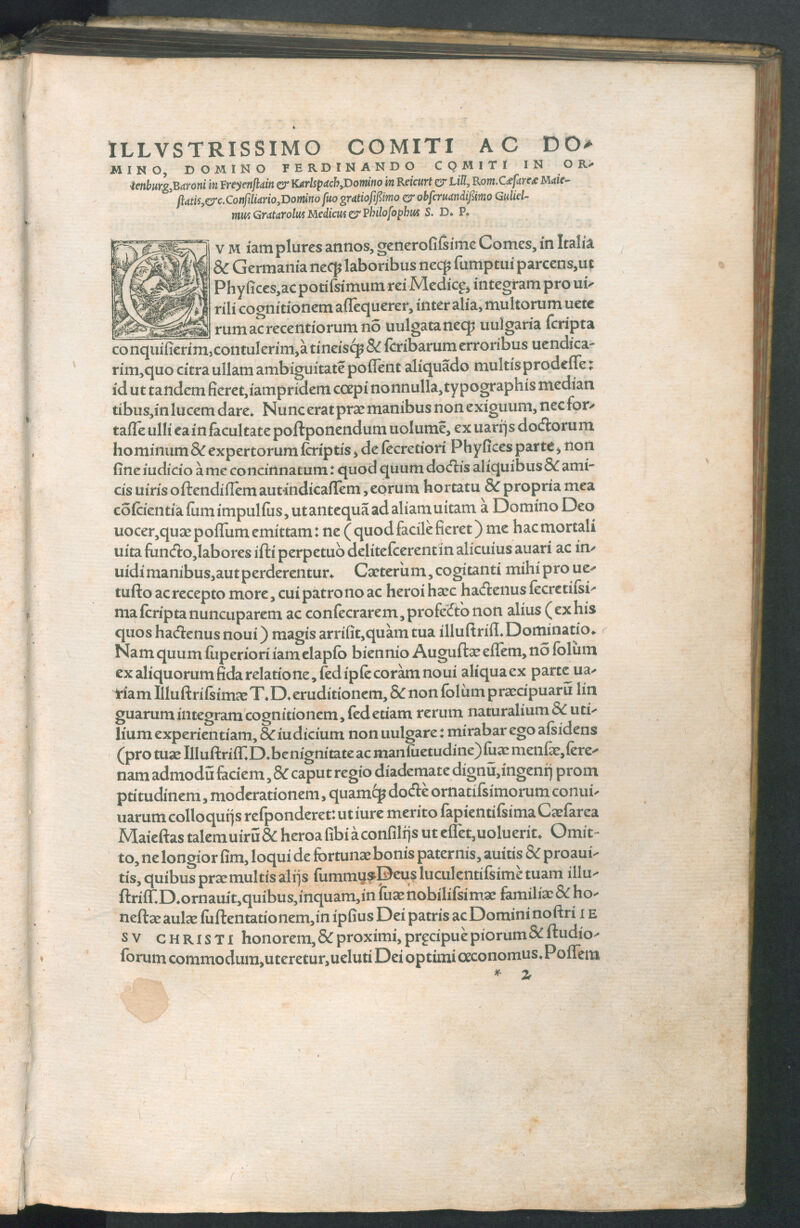 ILLVSTRISSIMO COMITI AC DO-
MINO, DOMINO FERDINANDO COMITI IN OR-
tenburg, Baroni in Freyenſtain & Karlspach, Domino in Reicurt & Lill, Rom. Cæſareæ Maie-
ſtatis, &c. Conſiliario, Domino ſuo gratioſiſsimo & obſeruandiſsimo Guliel-
mus Gratarolus Medicus & Philoſophus S. D. P.
CVM iam plures annos, generoſiſsime Comes, in Italia
& Germania neq; laboribus neq; ſumptui parcens, ut
Phyſices, ac potiſsimum rei Medicę, integram pro ui-
rili cognitionem aſſequerer, inter alia, multorum uete
rum ac recentiorum nõ uulgata neq; uulgaria ſcripta
conquiſierim, contulerim, à tineisq́; & ſcribarum erroribus uendica-
rim, quo citra ullam ambiguitatẽ poſſent aliquãdo multis prodeſſe:
id ut tandem fieret, iampridem cœpi nonnulla, typographis median
tibus, in lucem dare. Nunc erat præ manibus non exiguum, nec for-
taſſe ulli ea in facultate poſtponendum uolumẽ, ex uarijs doctorum
hominum & expertorum ſcriptis, de ſecretiori Phyſices parte, non
ſine iudicio à me concinnatum: quod quum doctis aliquibus & ami-
cis uiris oſtendiſſem aut indicaſſem, eorum hortatu & propria mea
cõſcientia ſum impulſus, ut antequã ad aliam uitam à Domino Deo
uocer, quæ poſſum emittam: ne (quod facilè fieret) me hac mortali
uita functo, labores iſti perpetuò deliteſcerent in alicuius auari ac in-
uidi manibus, aut perderentur. Cæterùm, cogitanti mihi pro ue-
tuſto ac recepto more, cui patrono ac heroi hæc hactenus ſecretiſsi-
ma ſcripta nuncuparem ac conſecrarem, profectò non alius (ex his
quos hactenus noui) magis arriſit, quàm tua illuſtriſſ. Dominatio.
Nam quum ſuperiori iam elapſo biennio Auguſtæ eſſem, nõ ſolùm
ex aliquorum fida relatione, ſed ipſe coràm noui aliqua ex parte ua-
riam Illuſtriſsimæ T. D. eruditionem, & non ſolùm præcipuarũ lin
guarum integram cognitionem, ſed etiam rerum naturalium & uti-
lium experientiam, & iudicium non uulgare: mirabar ego aſsidens
(pro tuæ Illuſtriſſ. D. benignitate ac manſuetudine) ſuæ menſæ, ſere-
nam admodũ faciem, & caput regio diademate dignũ, ingenij prom
ptitudinem, moderationem, quamq́; doctè ornatiſsimorum conui-
uarum colloquijs reſponderet: ut iure merito ſapientiſsima Cæſarea
Maieſtas talem uirũ & heroa ſibi à conſilijs ut eſſet, uoluerit. Omit-
to, ne longior ſim, loqui de fortunæ bonis paternis, auitis & proaui-
tis, quibus præ multis alijs ſummus Deus luculentiſsimè tuam illu-
ſtriſſ. D. ornauit, quibus, inquam, in ſuæ nobiliſsimæ familiæ & ho-
neſtæ aulæ ſuſtentationem, in ipſius Dei patris ac Domini noſtri IE
SV CHRISTI honorem, & proximi, pręcipuè piorum & ſtudio-
ſorum commodum, uteretur, ueluti Dei optimi œconomus. Poſſem
* 2